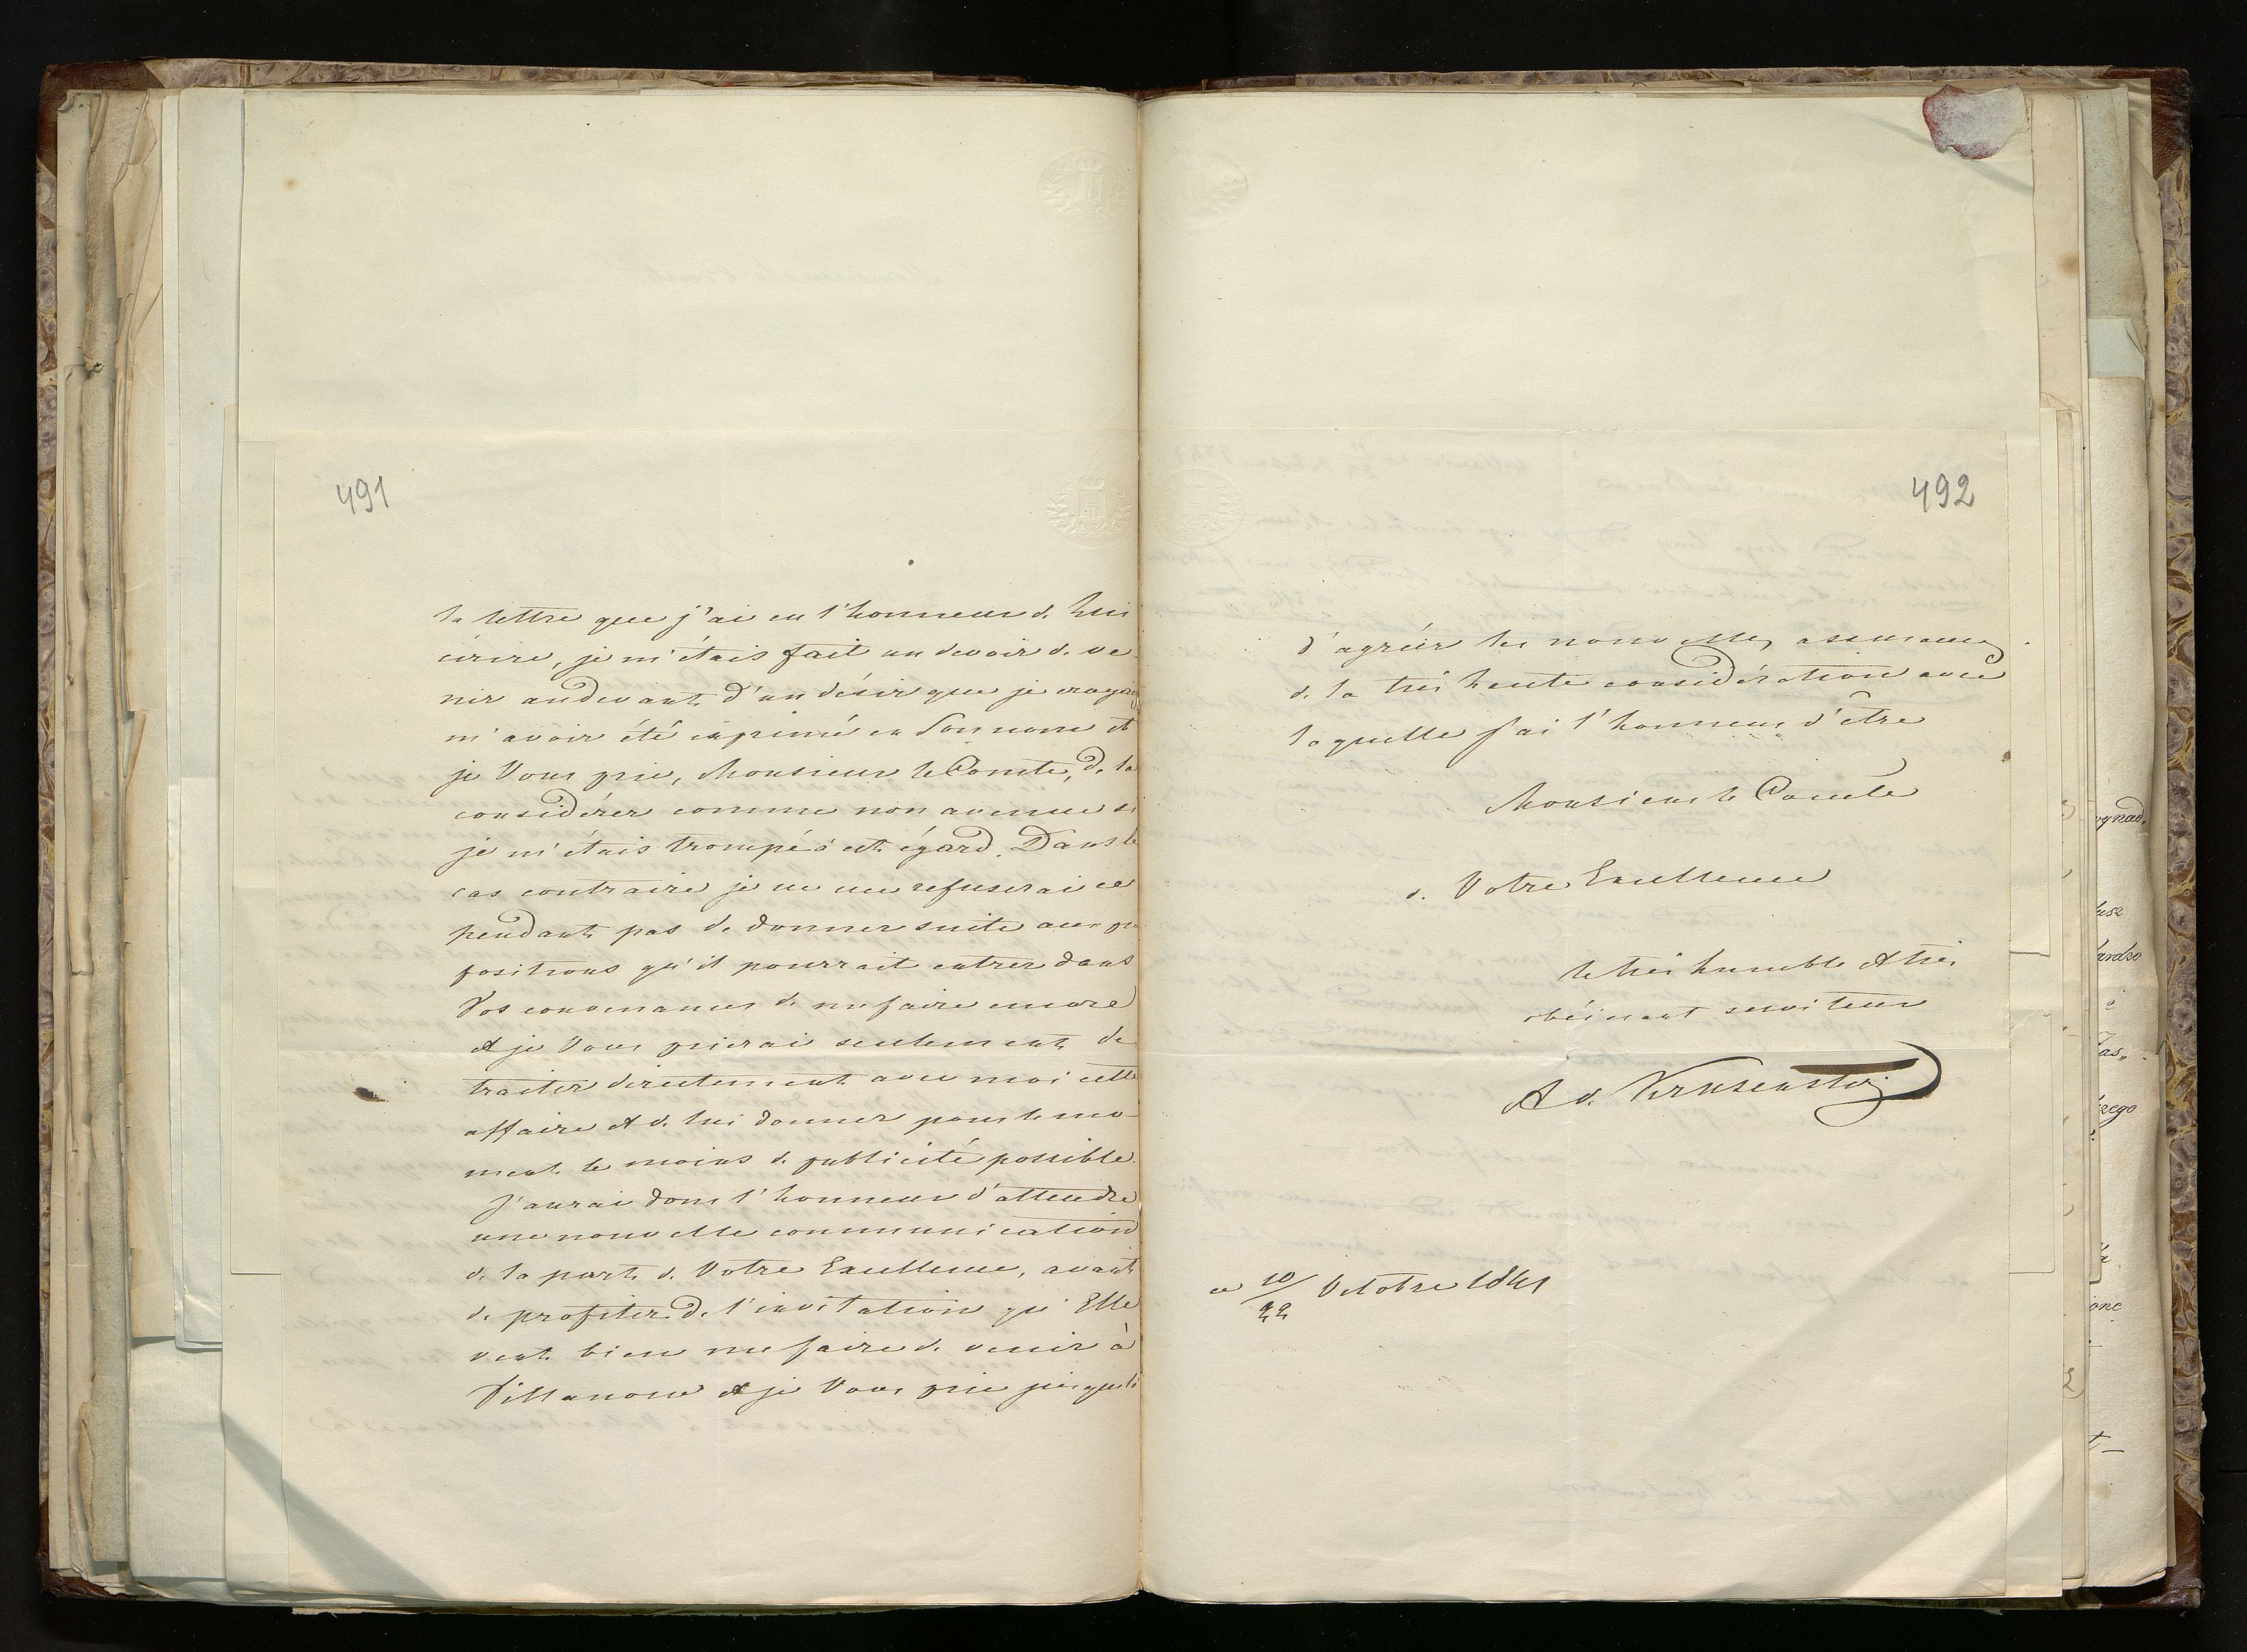 491
la lettre que j'ai eu l'honneur de Lui
écrire, je m'étais fait un devoir de ve-
nir audevant d'un désir que je croyais
m'avoir été exprimé en Son nom et
je Vous prie, Monsieur le Comte, de la
considérer comme non avenue si
je m'étais trompé à cet égard. Dans le
cas contraire je ne me refuserai ce
pendant pas de donner suite aux pro
positions qu'il pourrait entrer dans
Vos convenances de me faire encore
et je Vous prierai seulement de
traiter directement avec moi cette
affaire et de lui donner pour le mo-
ment le moins de publicité possible.
J'aurai donc l'honneur d'attendre
une nouvelle communication
de la part de Votre Excellence, avant
de profiter de l'invitation qu'Elle
veut bien me faire de venir à
Villanow et je Vous prie jusques là
492
d'agréer les nouvelles assurances
de la très haute considération avec
laquelle j'ai l'honneur d'être
Monsieur le Comte
de Votre Excellence
le très humble et très
obéissant serviteur
A d. Krusenstern
ce 10/22 Octobre 1841
ygnad.
usz
ardzo
é
as„
szego
one
t-